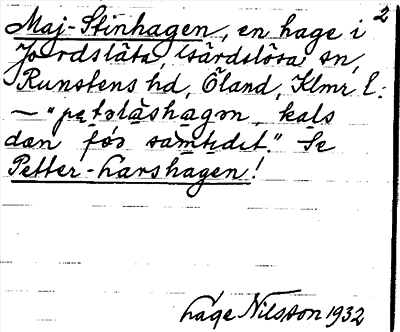 2
Maj-Stinhagen, en hage i
Jordsläta, Gärdslösa sn,
Runstens hd, Öland, Klmr l.
— "petəlàshagən, kals
dan för samtidit." Se
Petter-Larshagen!
Låge Nilsson 1932